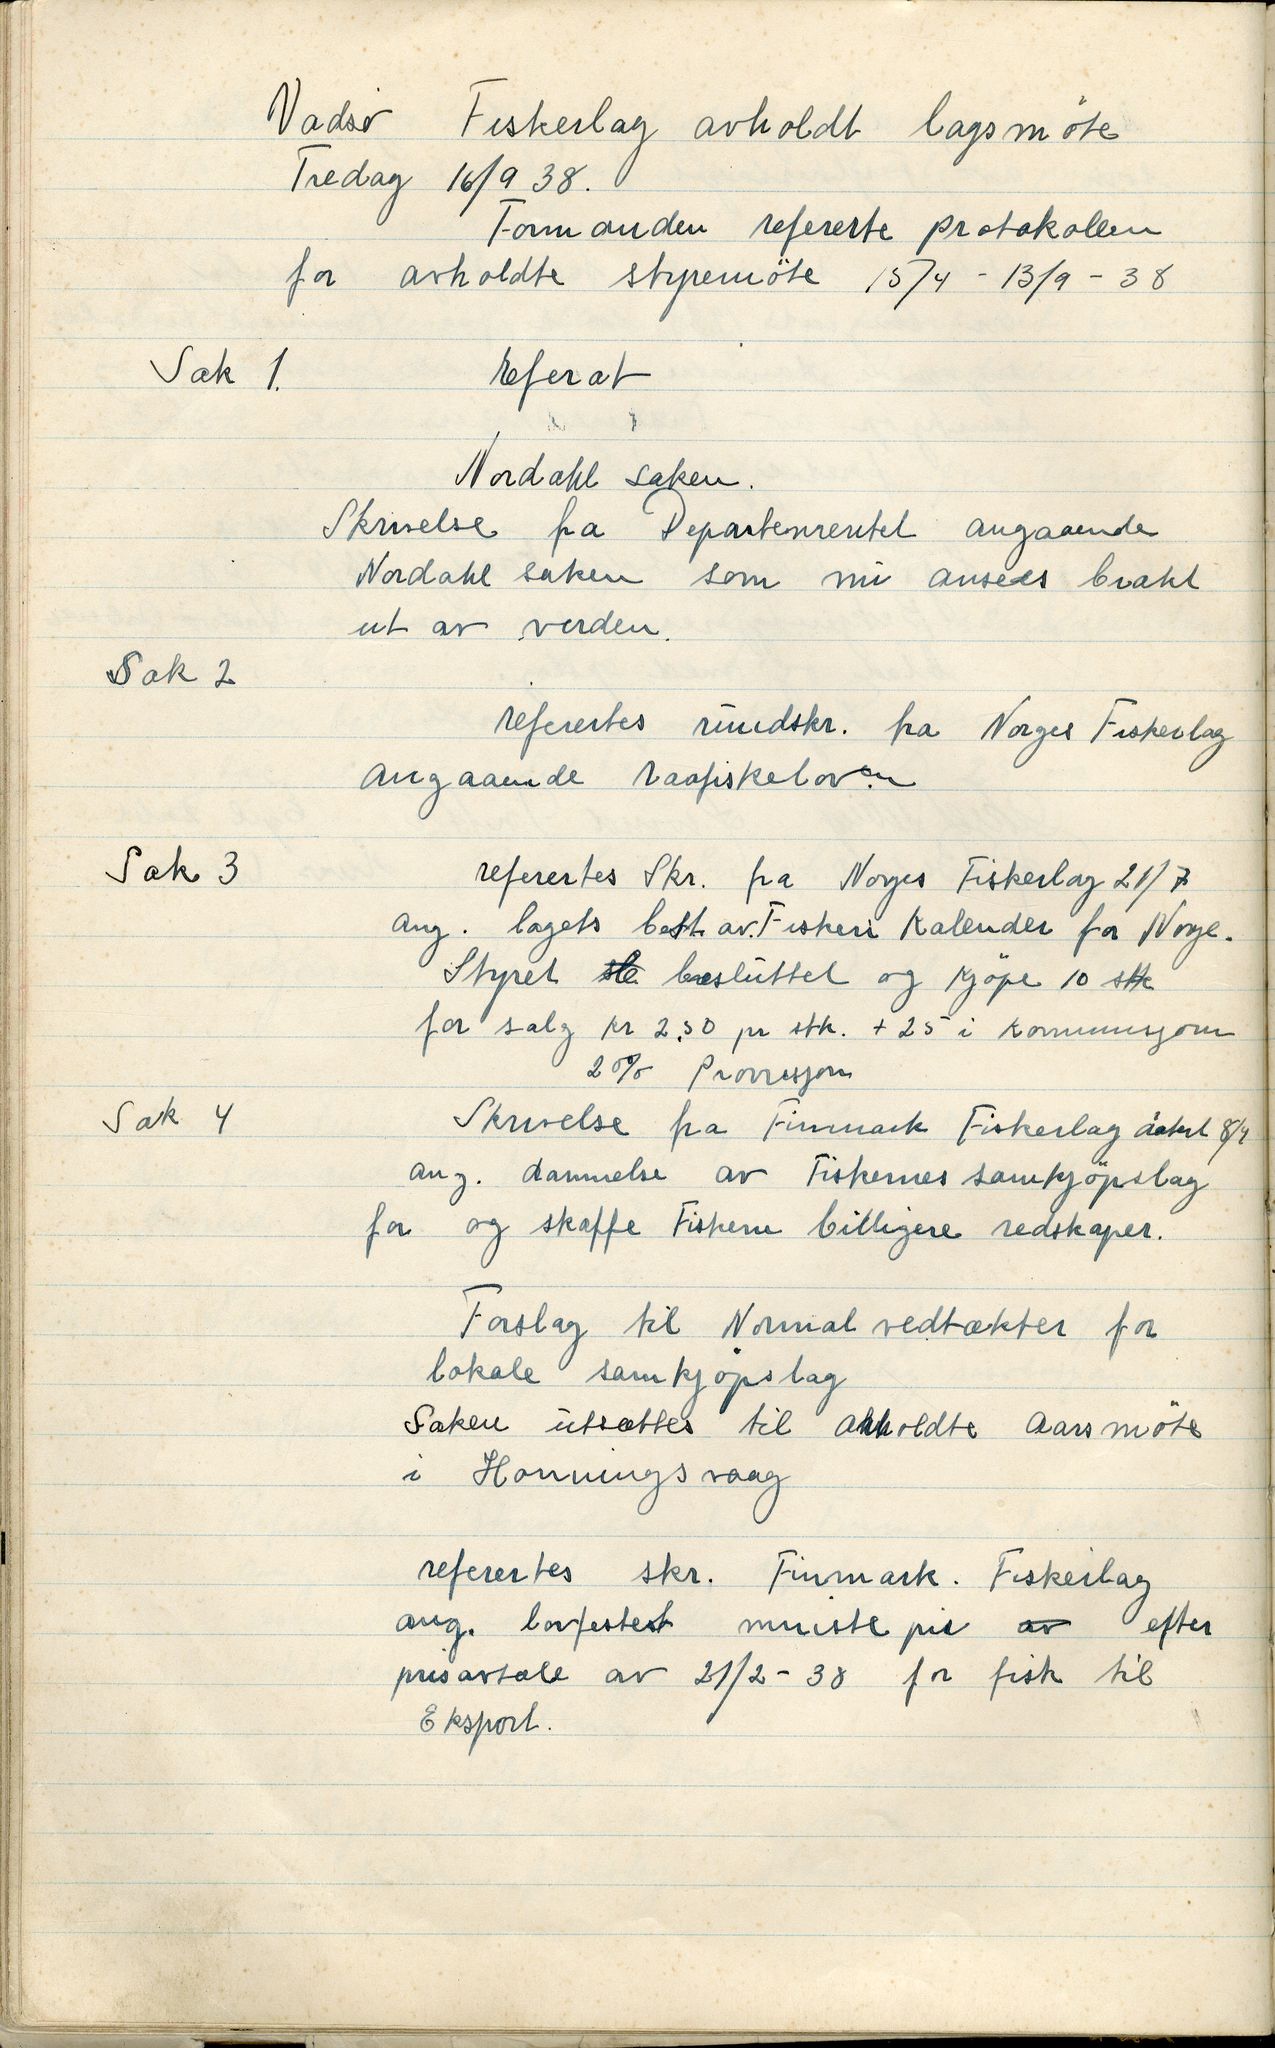 Vadsø Fiskerlag avholdt lagsmöte
Fredag 16/9 38.
Formanden refererte protokollen
for avholdte styremöte 15/4 - 13/9 - 38
Sak 1. referat
Nordahl saken.
Skrivelse fra Departementet angaaende
Nordahl saken som nu ansees brakt
ut av verden.
Sak 2
referertes rundskr. fra Norges Fiskerlag
angaaende raafiskeloven
Sak 3 referertes Skr. fra Norges Fiskerlag 21/7
ang. lagets best av. Fiskeri Kalender for Norge.
Styret besluttet og kjöpe 10 stk
for salg kr 2.50 pr stk. + 25 i Kommisjon
20% Provisjon
Sak 4 Skrivelse fra Finmark Fiskerlag datert 8/4
ang. dannelse av Fiskernes samkjöpslag
for og skaffe Fiskerne billigere redskaper.
Forslag til Normal vedtækter for
lokale samkjöpslag
Saken utsættes til avholdte aarsmöte
i Honningsvaag
referertes skr. Finmark. Fiskerlag
ang. lovfestet minste pris efter
prisavtale av 21/2 - 38 for fisk til
Eksport.